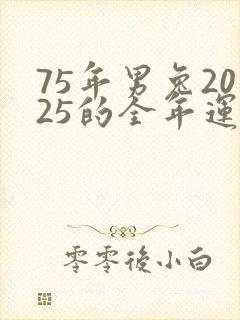 75年男兔20
25的全年運
零零後小白